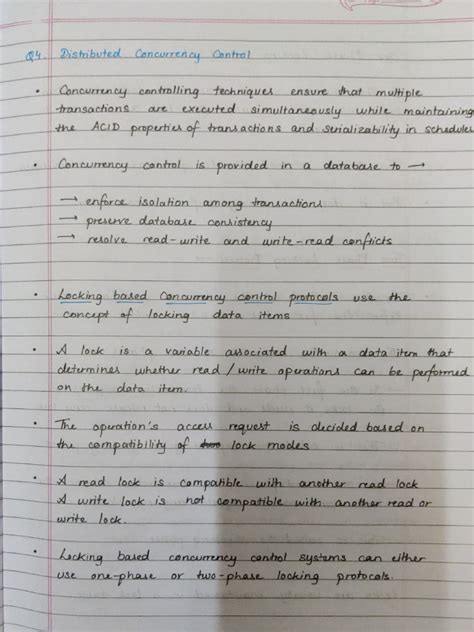 Q4. Distributed Concurrency Control
• Concurrency controlling techniques ensure that multiple
transactions are executed simultaneously while maintaining
the ACID properties of transactions and serializability in schedules
• Concurrency control is provided in a database to →
→ enforce isolation among transactions
→ preserve database consistency
→ resolve read-write and write-read conflicts
• Locking based concurrency control protocols use the
concept of locking data items
• A lock is a variable associated with a data item that
determines whether read / write operations can be performed
on the data item.
• The operation's access request is decided based on
the compatibility of lock modes
• A read lock is compatible with another read lock
A write lock is not compatible with another read or
write lock.
• Locking based concurrency control systems can either
use one-phase or two-phase locking protocols.